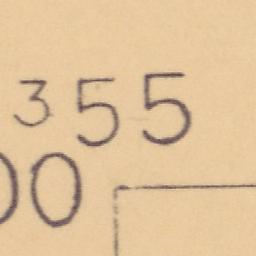 355
00